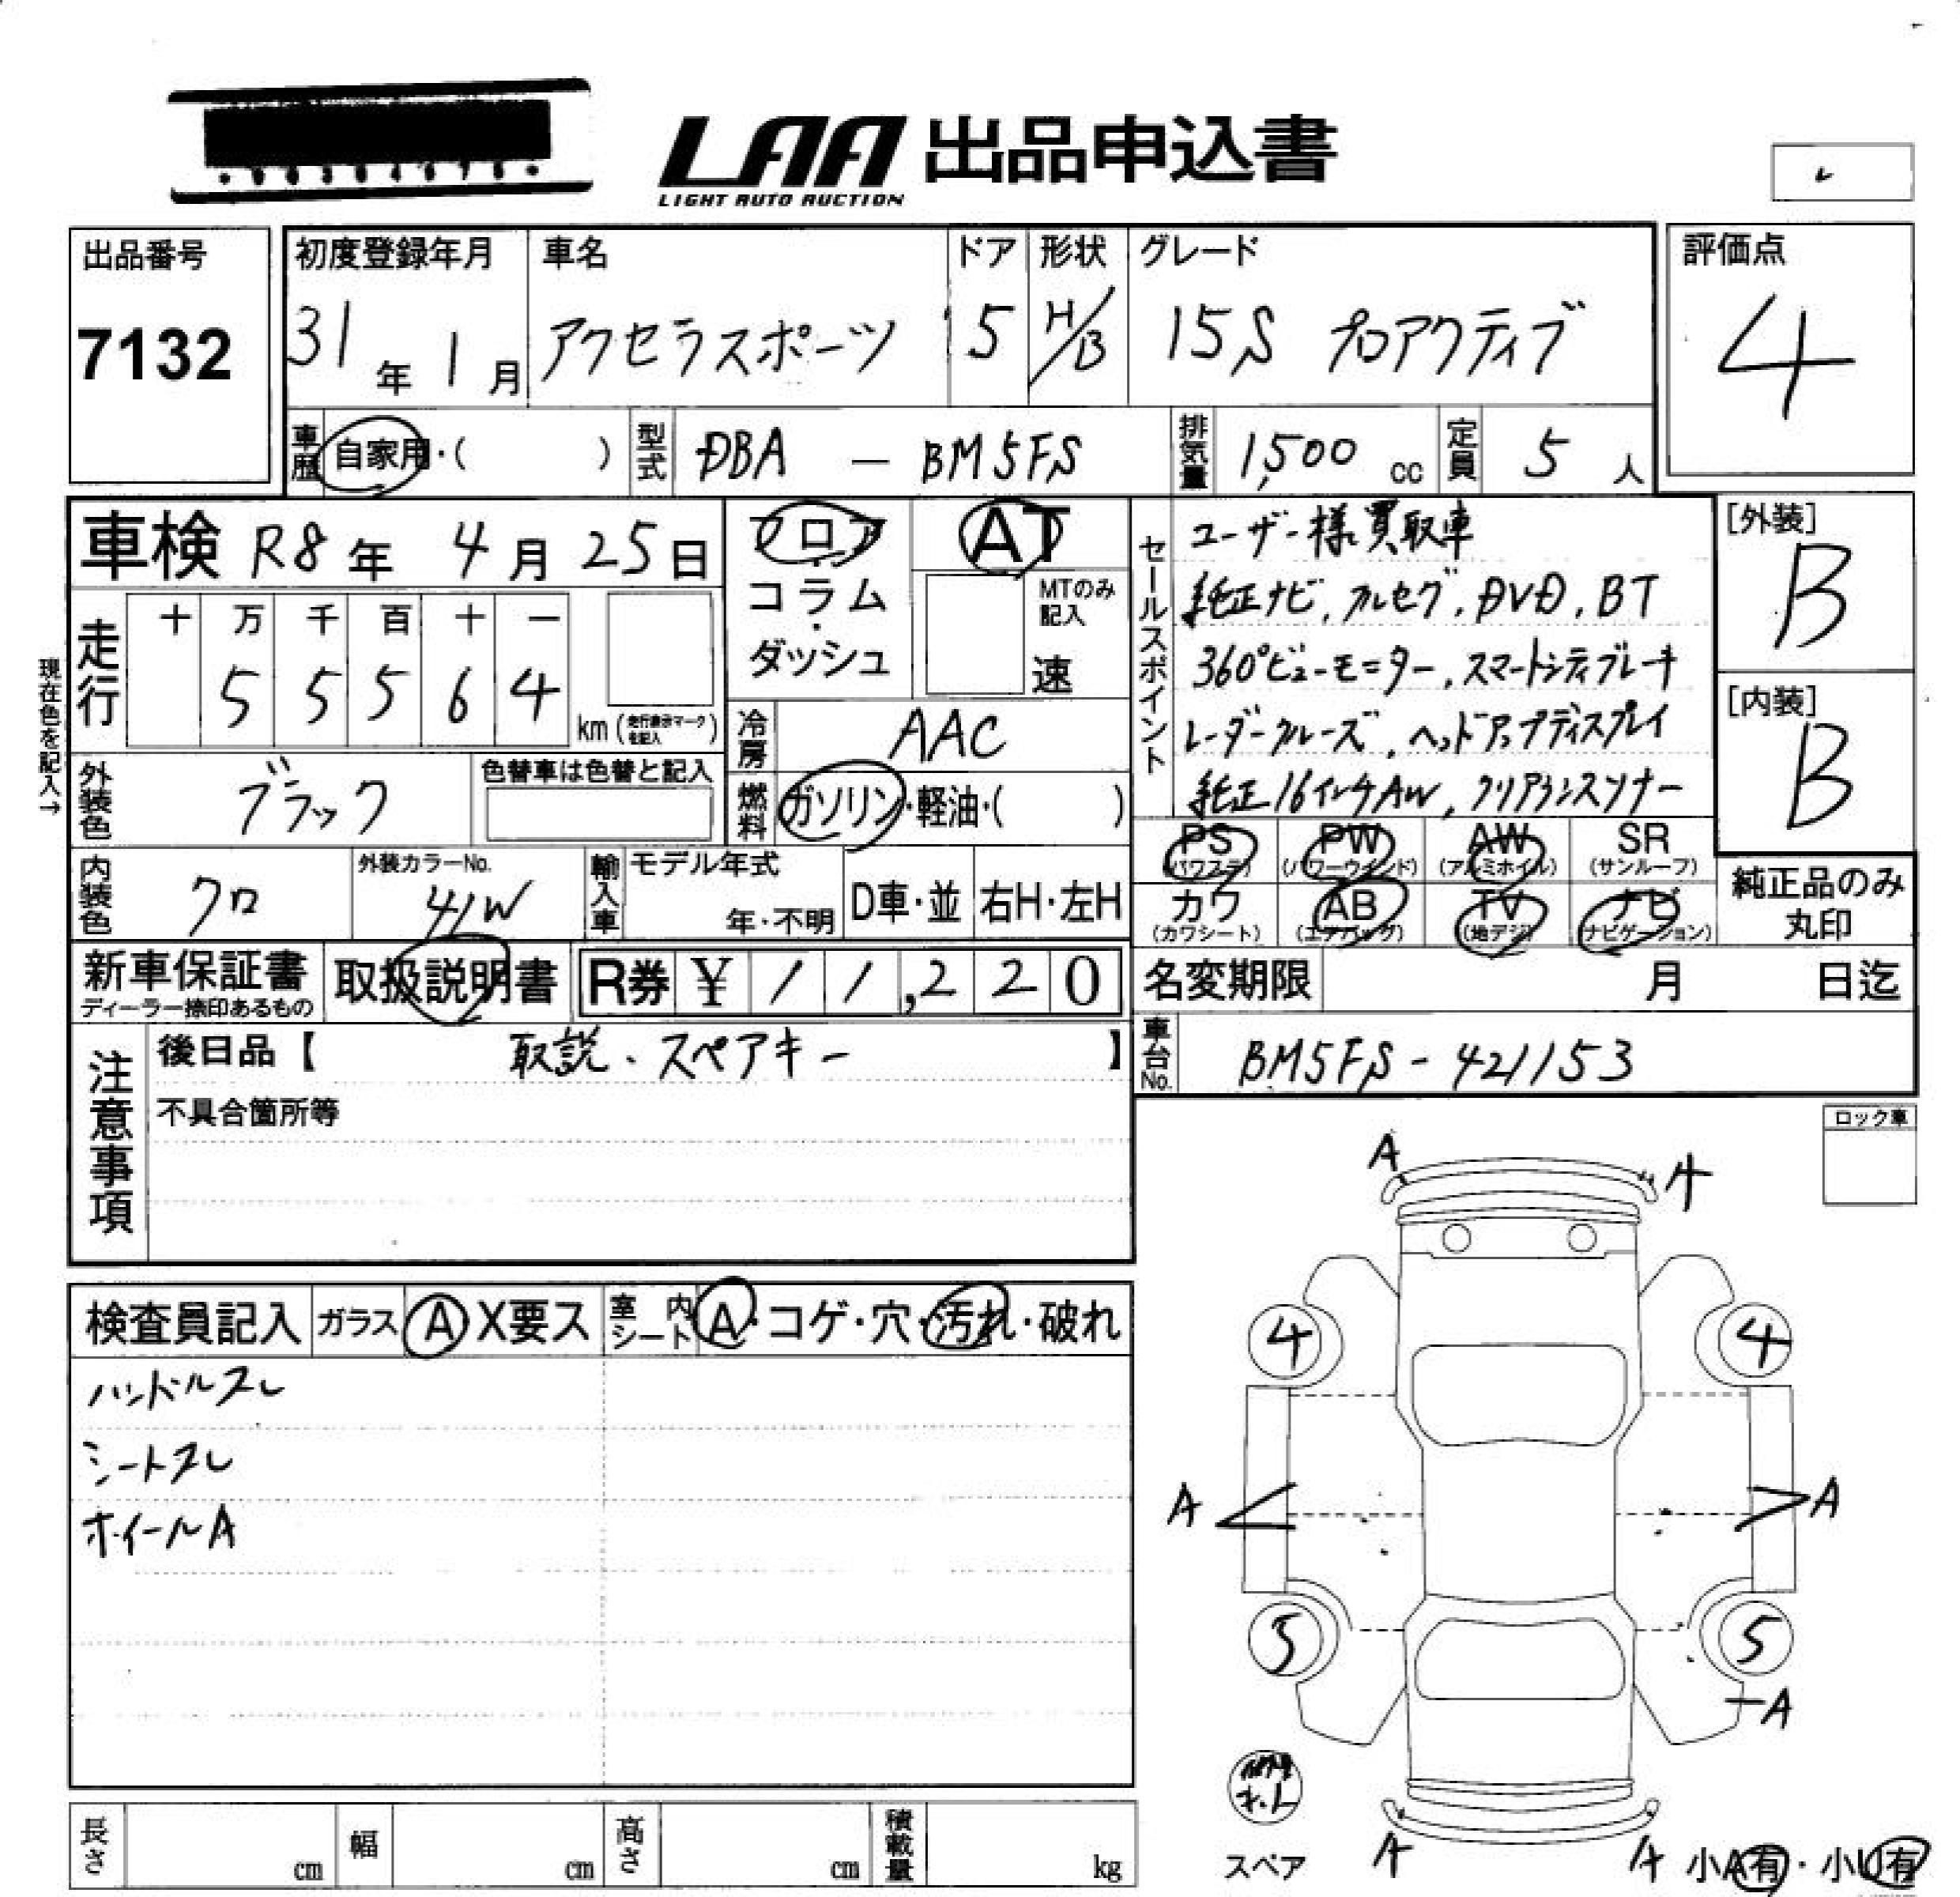 LAA 出品申込書
LIGHT AUTO AUCTION
出品番号
7132
初度登録年月
31年 1月
車名
アクセラスポーツ
ドア
5
形状
H/B
グレード
15S プロアクティブ
評価点
4
車歴 自家用・( )
型式 DBA - BM5FS
排気量 1,500 cc
定員 5 人
車検 R8年 4月 25日
現在色を記入→
走行
十 万 千 百 十 一
5 5 5 6 4
km (走行表示マークを記入)
フロア
コラム
・
ダッシュ
AT
MTのみ記入
速
冷房 AAC
燃料 ガソリン・軽油・( )
外装色 ブラック
色替車は色替と記入
内装色 クロ
外装カラーNo.
41W
輸入車
モデル年式
年・不明
D車・並
右H・左H
セールスポイント
ユーザー様買取車
純正ナビ,フルセグ,DVD,BT
360°ビューモニター,スマートシティブレーキ
レーダークルーズ,ヘッドアップディスプレイ
純正16インチAW,クリアランスソナー
[外装]
B
[内装]
B
PS
(パワステ)
PW
(パワーウインド)
AW
(アルミホイル)
SR
(サンルーフ)
カワ
(カワシート)
AB
(エアバッグ)
TV
(地デジ)
ナビ
(ナビゲーション)
純正品のみ
丸印
新車保証書
ディーラー捺印あるもの
取扱説明書
R券 ¥ 11,220
名変期限 月 日迄
車台No. BM5FS-421153
注意事項
後日品【 取説、スペアキー 】
不具合箇所等
ロック車
検査員記入
ガラス A X要ス
室内シート A・コゲ・穴・汚れ・破れ
ハンドルスレ
シートスレ
ホイールA
A A
4 4
A A
5 5
A
スペア
A A
小A有・小U有
長さ cm
幅 cm
高さ cm
積載量 kg